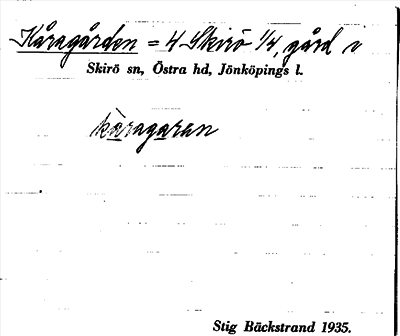 Kåragården = 4 Skirö 1/4, gård i
Skirö sn, Östra hd, Jönköpings l.
kàragaran
Stig Bäckstrand 1935.